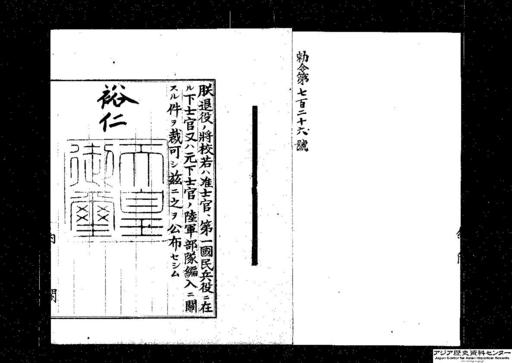 勅令第七百二十六號
朕退役ノ將校若ハ准士官、第一國民兵役ニ在
ル下士官又ハ元下士官ノ陸軍部隊編入ニ關
スル件ヲ裁可シ茲ニ之ヲ公布セシム
裕仁
天皇
御璽
内閣
アジア歴史資料センター
Japan Center for Asian Historical Records